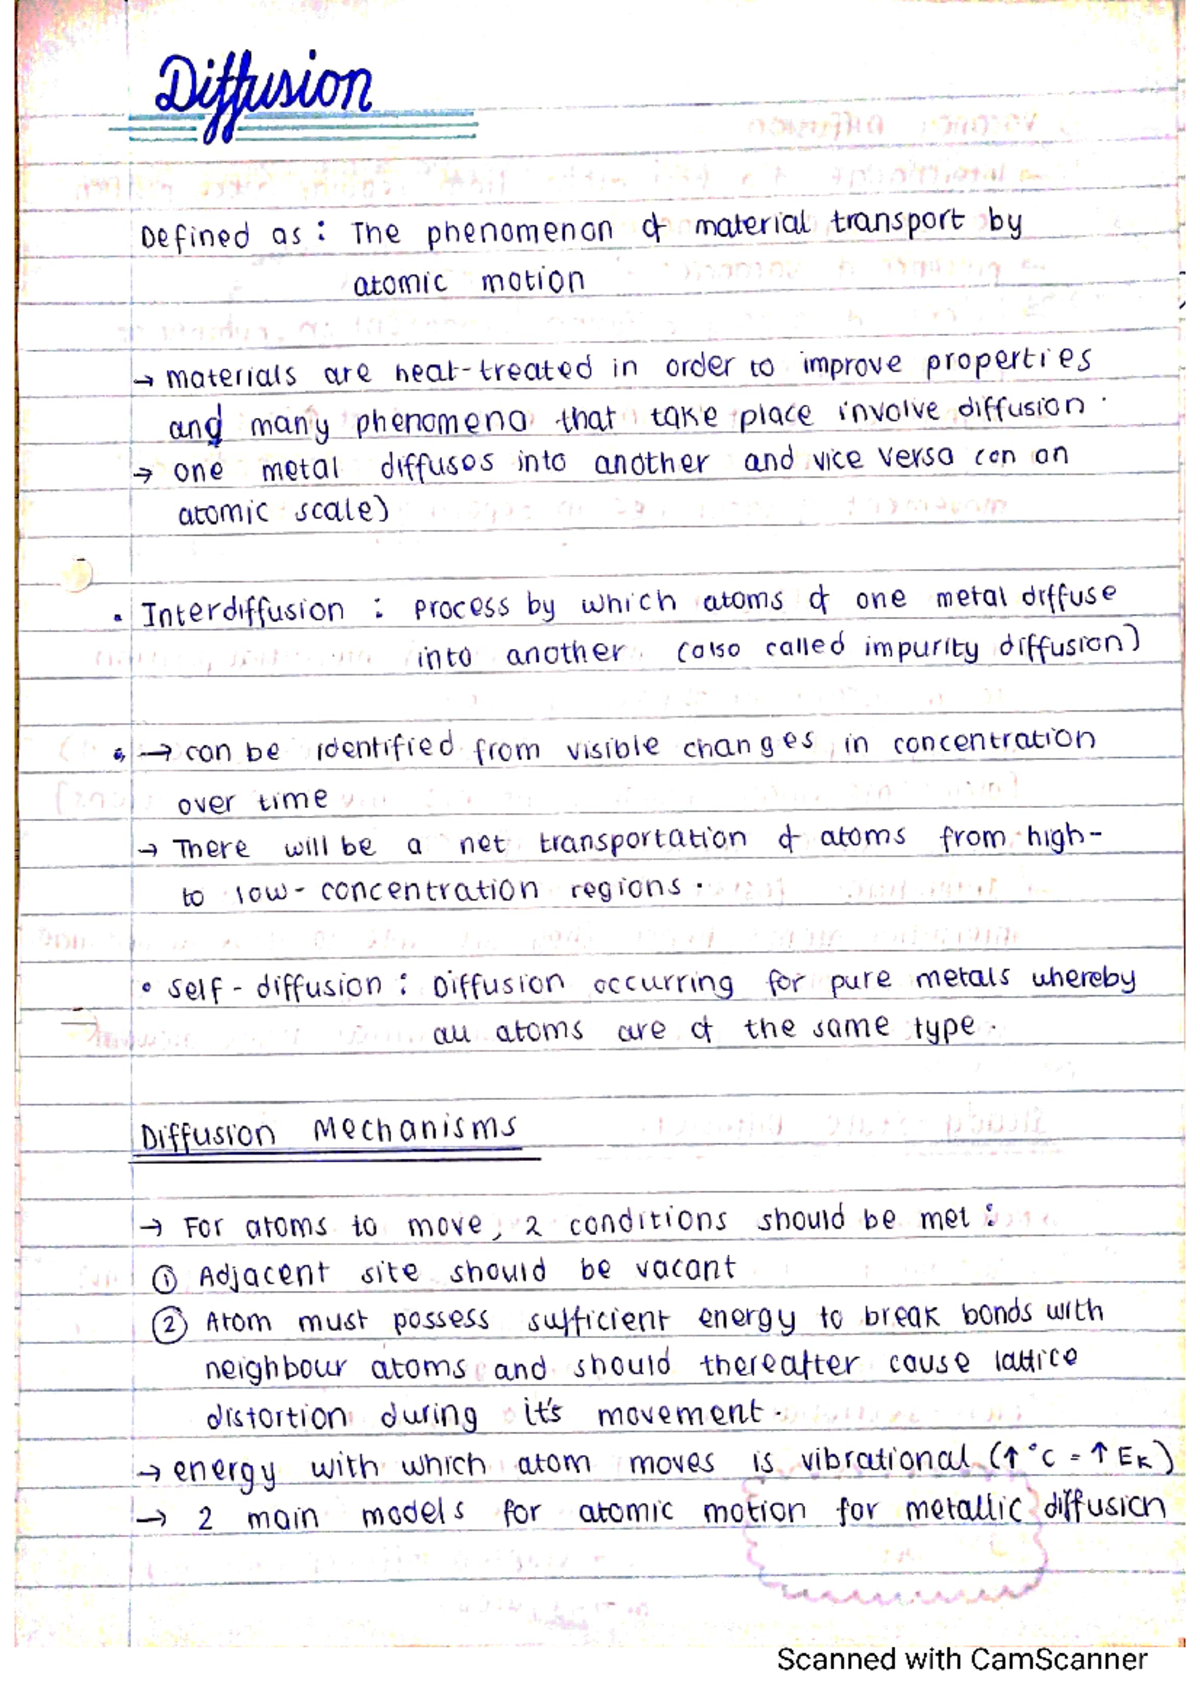 Diffusion
Defined as : The phenomenon of material transport by
atomic motion
→ materials are heat-treated in order to improve properties
and many phenomena that take place involve diffusion.
→ one metal diffuses into another and vice versa (on an
atomic scale)
• Interdiffusion : process by which atoms of one metal diffuse
into another. (also called impurity diffusion)
• → can be identified from visible changes in concentration
over time
→ There will be a net transportation of atoms from high-
to low-concentration regions.
• Self-diffusion : Diffusion occurring for pure metals whereby
all atoms are of the same type.
Diffusion Mechanisms
→ For atoms to move, 2 conditions should be met :
① Adjacent site should be vacant
② Atom must possess sufficient energy to break bonds with
neighbour atoms and should thereafter cause lattice
distortion during it's movement.
→ energy with which atom moves is vibrational (↑ °C = ↑ EK)
→ 2 main models for atomic motion for metallic diffusion
Scanned with CamScanner